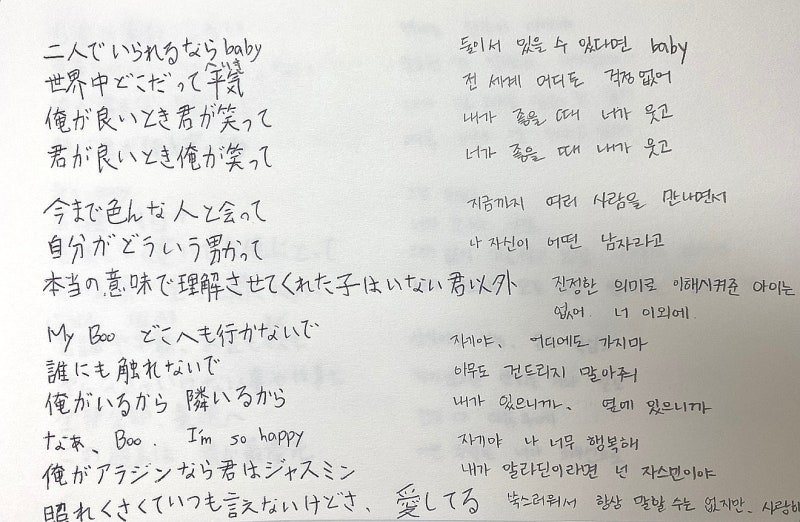 二人でいられるならbaby 둘이서 있을 수 있다면 baby
へいき
世界中どこだって平気 전 세계 어디도 걱정없어
俺が良いとき君が笑って 내가 좋을 때 너가 웃고
君が良いとき俺が笑って 너가 좋을 때 내가 웃고
今まで色んな人と会って 지금까지 여러 사람을 만나면서
自分がどういう男かって 나 자신이 어떤 남자라고
本当の意味で理解させてくれた子はいない君以外 진정한 의미로 이해시켜준 아이는
없어. 너 이외에.
My Boo どこへも行かないで 자기야、 어디에도 가지마
誰にも触れないで 아무도 건드리지 말아줘
俺がいるから 隣いるから 내가 있으니까、 옆에 있으니까
なぁ、Boo. I'm so happy 자기야 나 너무 행복해
俺がアラジンなら君はジャスミン 내가 알라딘이라면 넌 자스민이야
照れくさくていつも言えないけどさ、愛してる 쑥스러워서 항상 말할 수는 없지만、